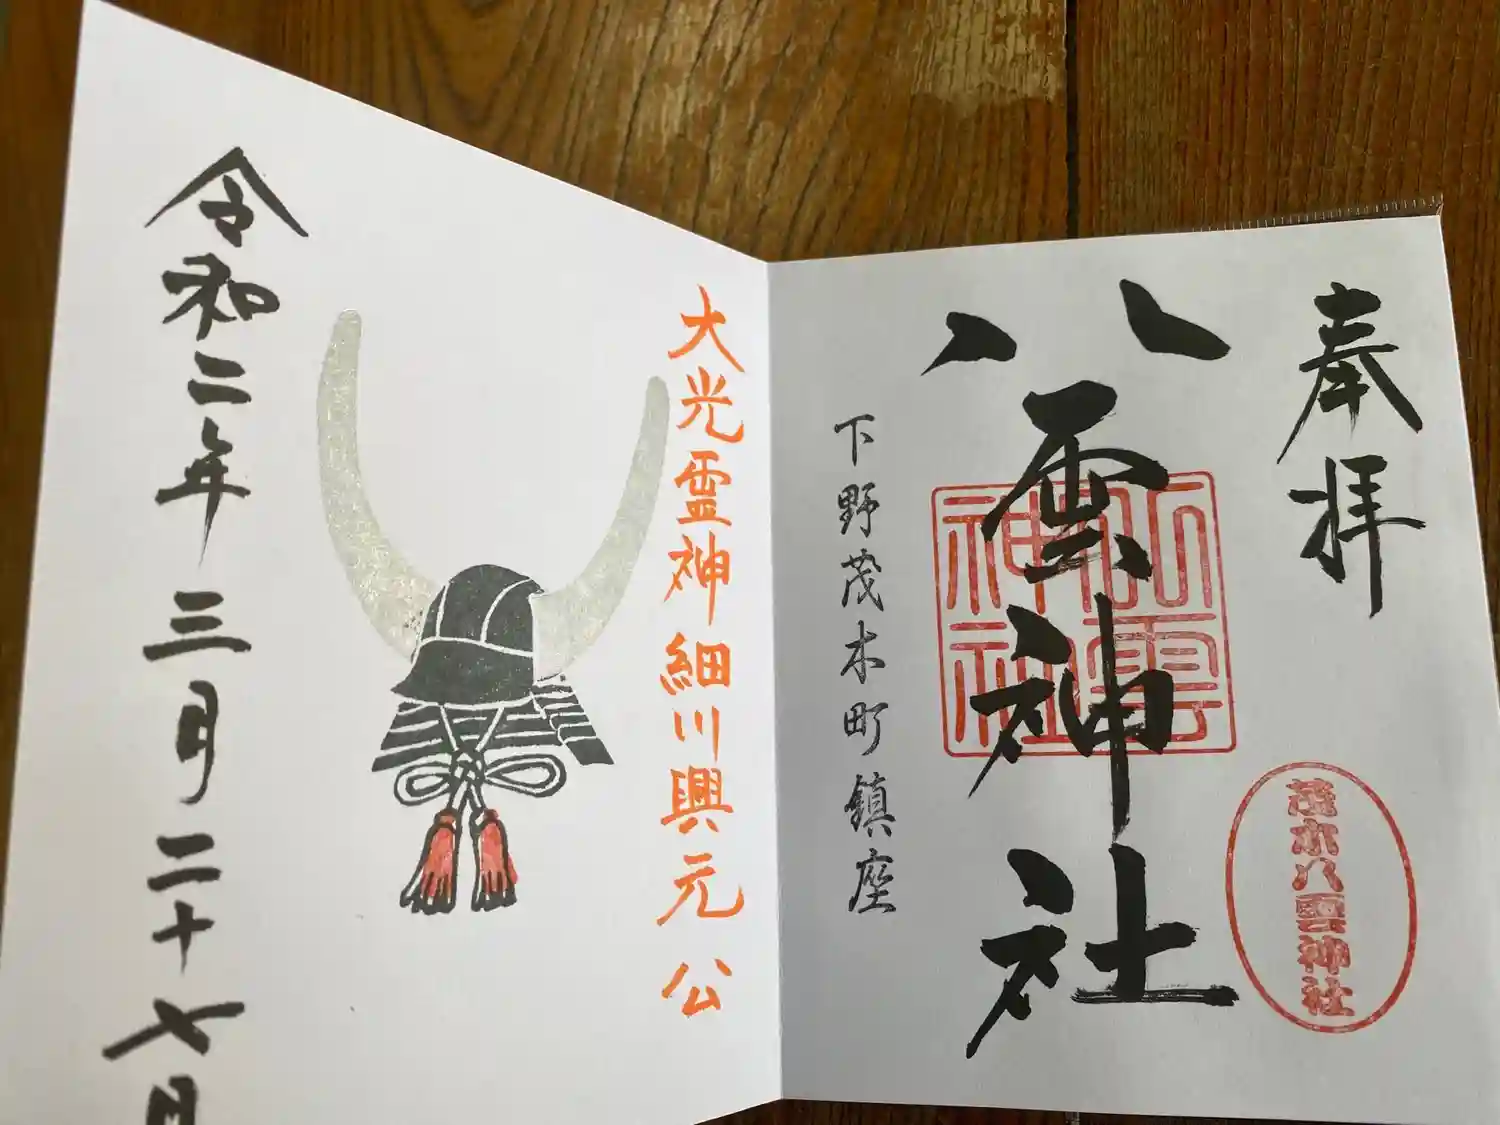 奉拝
八雲神社
八雲神社
茂木八雲神社
下野茂木町鎮座
大光霊神細川興元公
令和二年三月二十七日